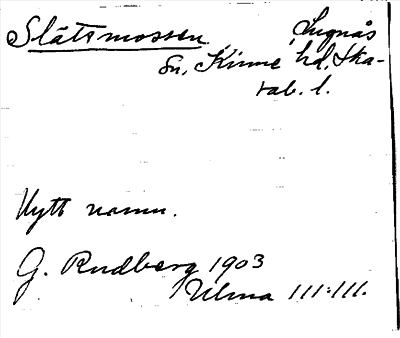 Slätsmossen Lugnås
Sn, Kinne hd, Ska-
rab. l.
Nytt namn.
G. Rudberg 1903
Ulma 111:111.